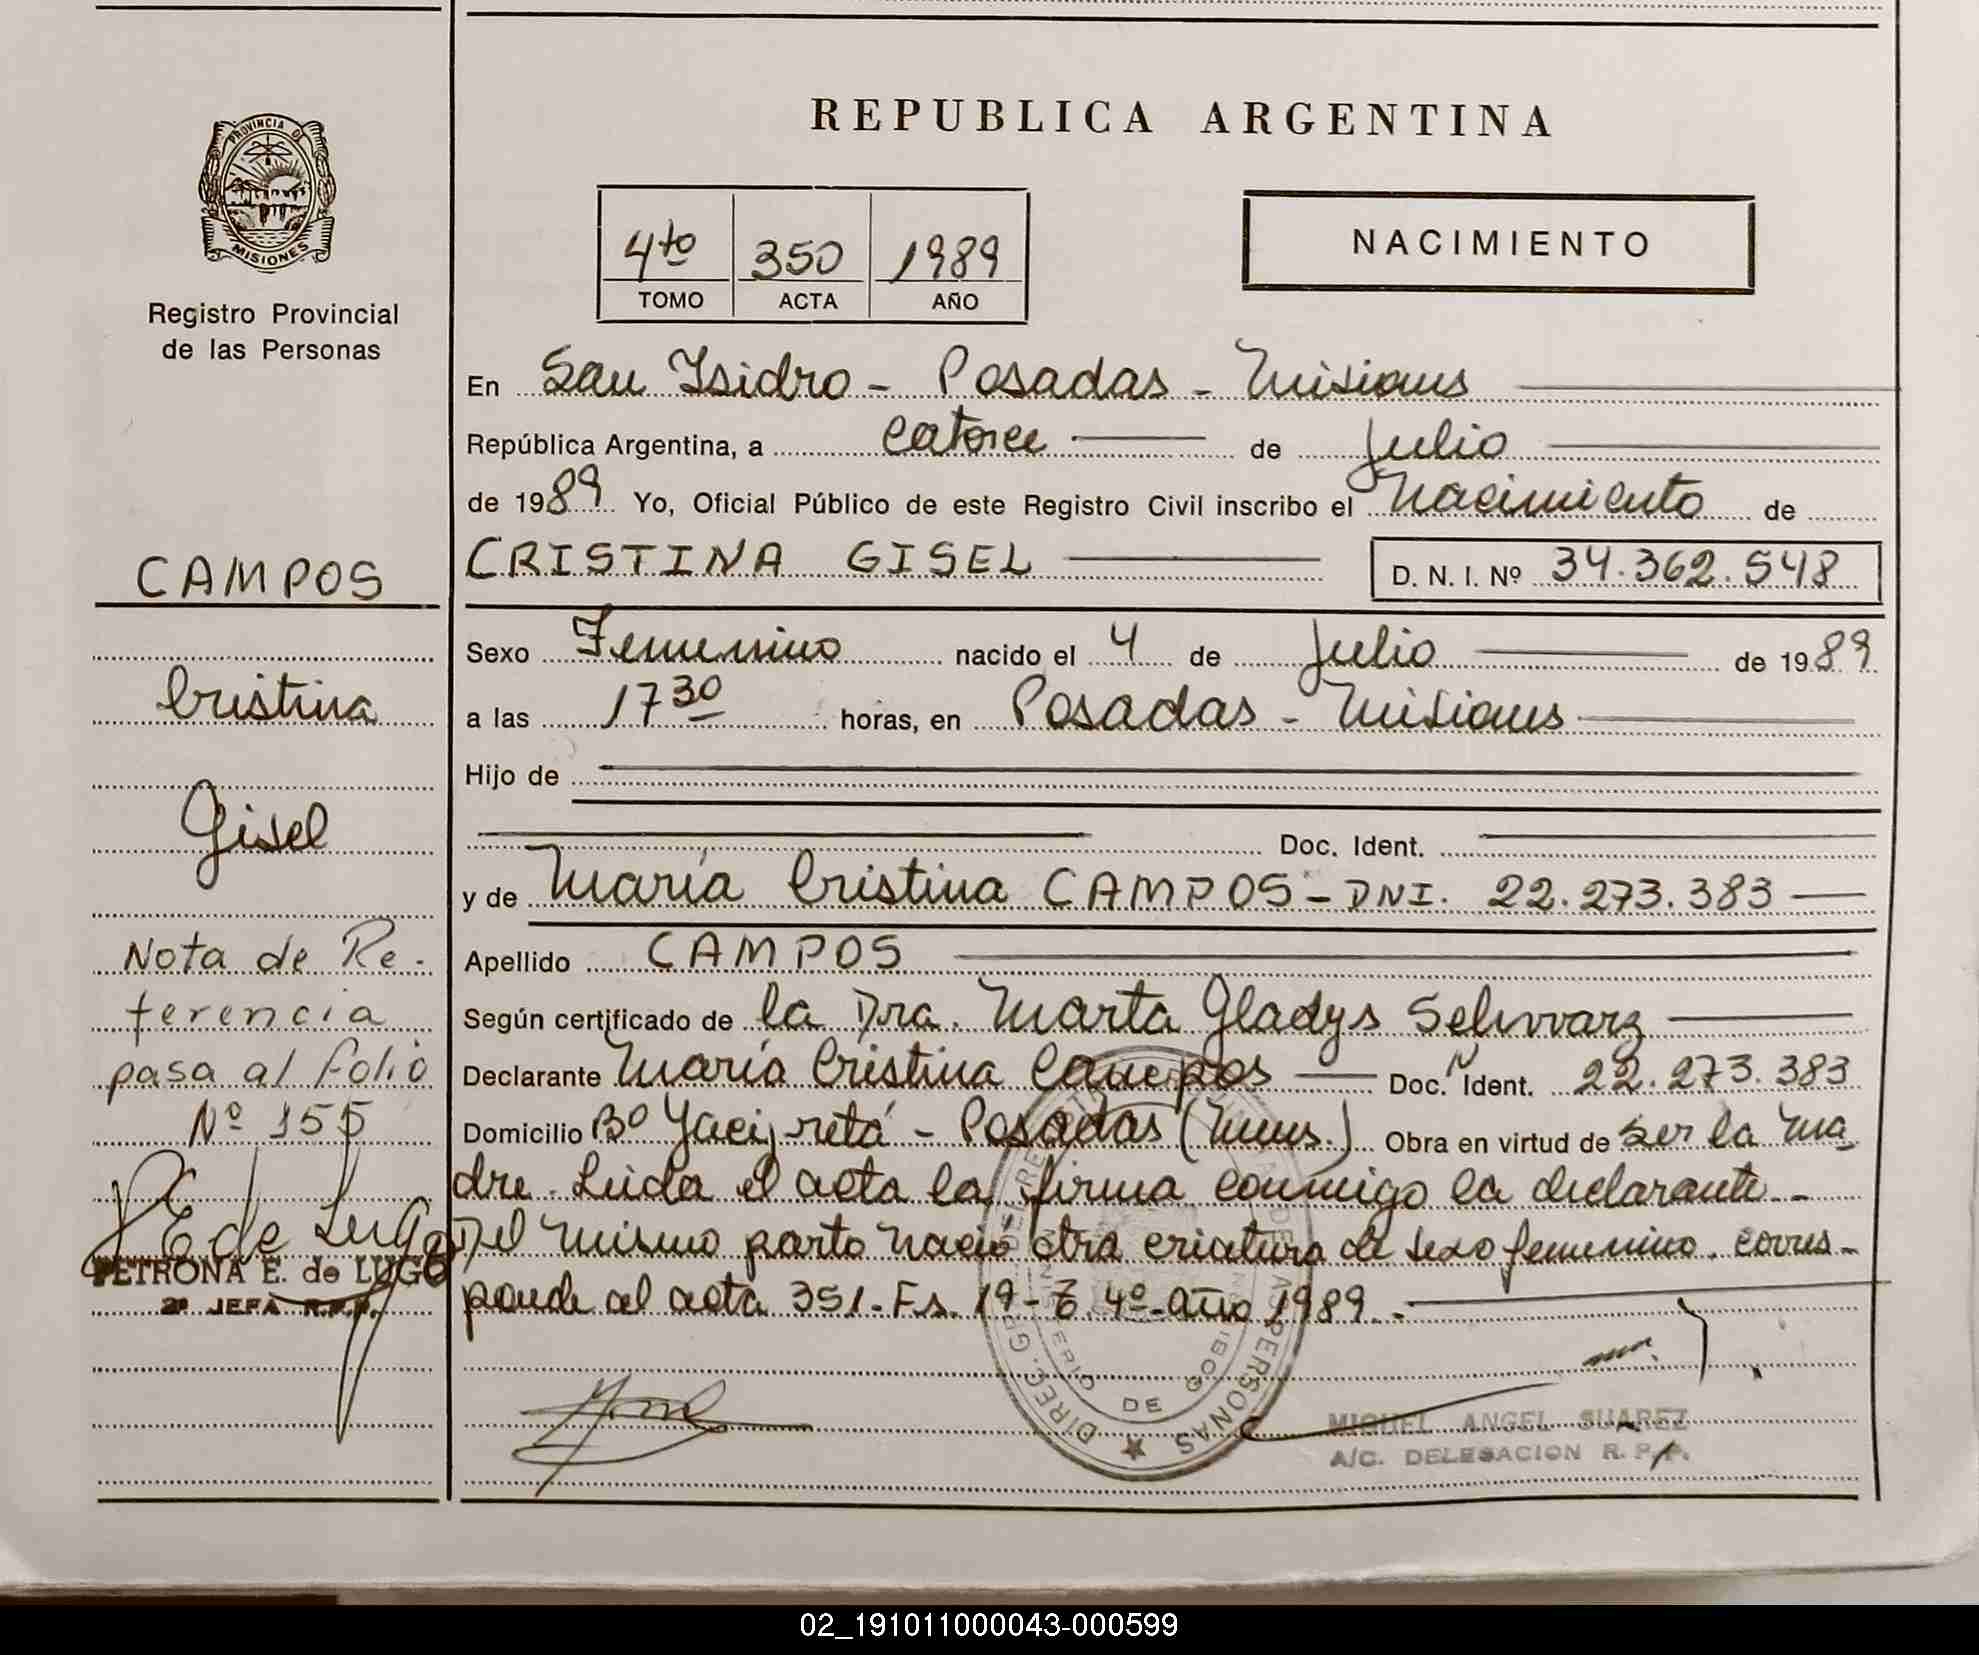 REPUBLICA ARGENTINA
PROVINCIA DE
MISIONES
Registro Provincial
de las Personas
4to 350 1989
TOMO ACTA AÑO
NACIMIENTO
En San Isidro - Posadas - Misiones
República Argentina, a Catorce de Julio
de 1989 Yo, Oficial Público de este Registro Civil inscribo el Nacimiento de
CAMPOS
CRISTINA GISEL D. N. I. Nº 34.362.548
Sexo Femenino nacido el 4 de Julio de 1989
Cristina
a las 17 30 horas, en Posadas - Misiones
Hijo de
Gisel
Doc. Ident.
y de María Cristina CAMPOS - DNI. 22.273.383
Nota de Re-
ferencia
pasa al folio
Nº 155
Apellido CAMPOS
Según certificado de la Dra. Marta Gladys Schwarz
Declarante María Cristina Campos Doc. Ident. 22.273.383
Domicilio Bº Yacyretá - Posadas (Mnes.) Obra en virtud de ser la ma
dre. Leída el acta la firma conmigo la declarante -
Del mismo parto nació otra criatura de sexo femenino. corres-
ponde al acta 351. Fs. 19 - T. 4º - año 1989. -
P E de Lugo
PETRONA E. de LUGO
2ª JEFA R.P.P.
DE
PERSONAS
MIGUEL ANGEL SUAREZ
A/C. DELEGACION R. P. P.
02_191011000043-000599